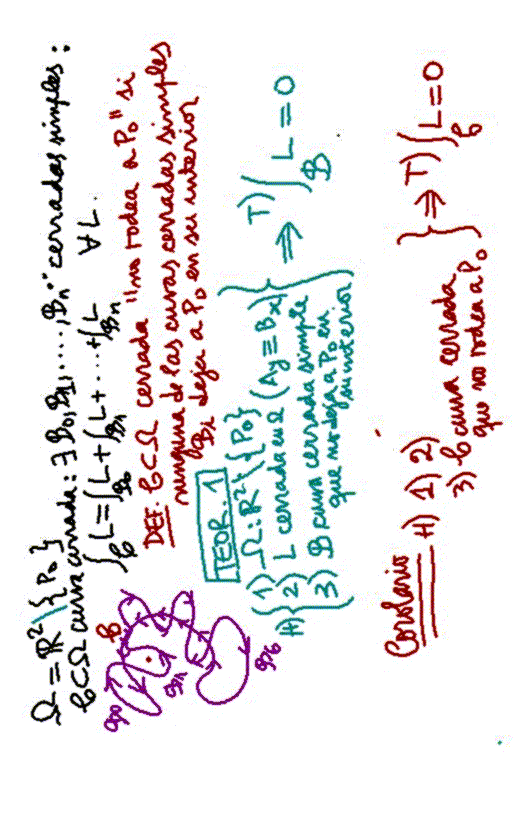 Ω = ℝ² \ {P₀}
𝒞 ⊂ Ω curva cerrada : ∃ ℬ₀, ℬ₁, ..., ℬₙ "cerradas simples :
∫_𝒞 L = ∫_ℬ₀ L + ∫_ℬ₁ L + ... + ∫_ℬₙ L ∀ L.
𝒞
ℬ₀
ℬ₁
ℬ₆
DEF: 𝒞 ⊂ Ω cerrada "no rodea a P₀" si
ninguna de las curvas cerradas simples
ℬᵢ deja a P₀ en su interior
TEOR. 1
H) { 1) Ω : ℝ² \ {P₀}
2) L cerrada en Ω (Ay = Bx)
3) ℬ curva cerrada simple
que no deja a P₀ en
su interior } ⇒ T) ∫_ℬ L = 0
Corolario H) 1) 2)
3) 𝒞 curva cerrada
que no rodea a P₀ } ⇒ T) ∫_𝒞 L = 0